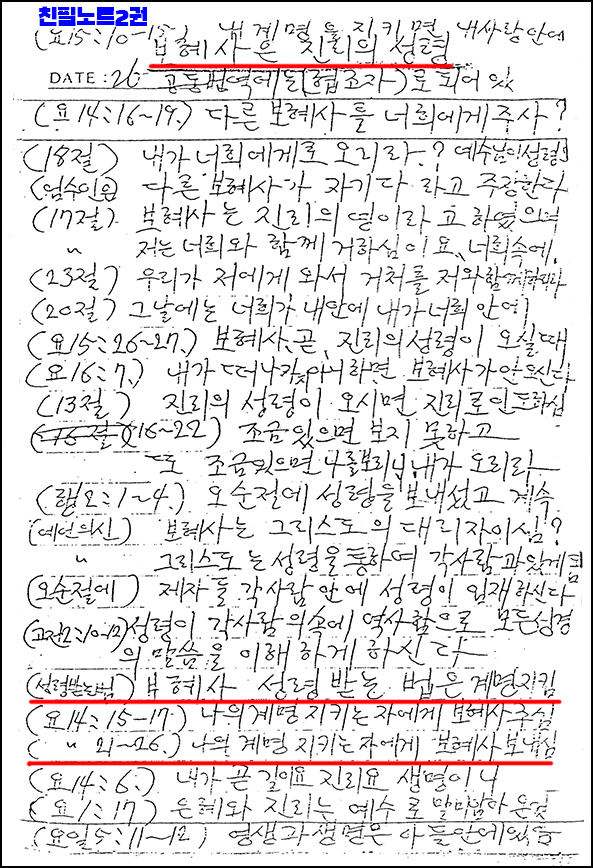 친필노트2권
(요15:10-15) 내 계명을 지키면 내사랑안에
보혜사은 진리의 성령
DATE : 26 공동번역에는(협조자)로 되어 있
(요14:16~19.) 다른 보혜사를 너희에게 주사?
(18절) 내가 너희에게로 오리라.? 예수님이성령으
다른 보혜사가 자기다 라고 주장한다
(17절) 보혜사는 진리의 영이라고 하였으며
〃 저는 너희와 함께 거하심이요, 너희속에.
(23절) 우리가 저에게 와서 거처를 저와함께하리라
(20절) 그날에는 너희가 내안에 내가 너희 안에
(요15:26~27.) 보혜사, 곧, 진리의성령이 오실때
(요16:7.) 내가 떠나가지아니하면 보혜사가안오신다
(13절) 진리의 성령이 오시면 진리로인도하심
(16절)(16~22) 조금있으면 보지 못하고
또 조금있으면나를보리니,내가 오리라
(행2:1~4.) 오순절에 성령을 보내셨고 계속
(예언의신) 보혜사는 그리스도의 대리자이심?
〃 그리스도는성령을통하여 각사람과있게됨
(오순절에) 제자들 각사람 안에 성령이 임재하신다
성령이 각사람의속에 역사함으로 모든성경
의 말씀을 이해하게 하신다
(성령받는법) 보혜사 성령받는 법은계명지킴
(요14:15-17.) 나의계명 지키는자에게 보혜사주심
( 〃 21~26.) 나의 계명 지키는자에게 보혜사보내심
(요14:6.) 내가 곧길이요 진리요 생명이니
(요1:17) 은혜와 진리는 예수로 말미암아 온것
(요일5:11~12) 영생과생명은 아들안에있음